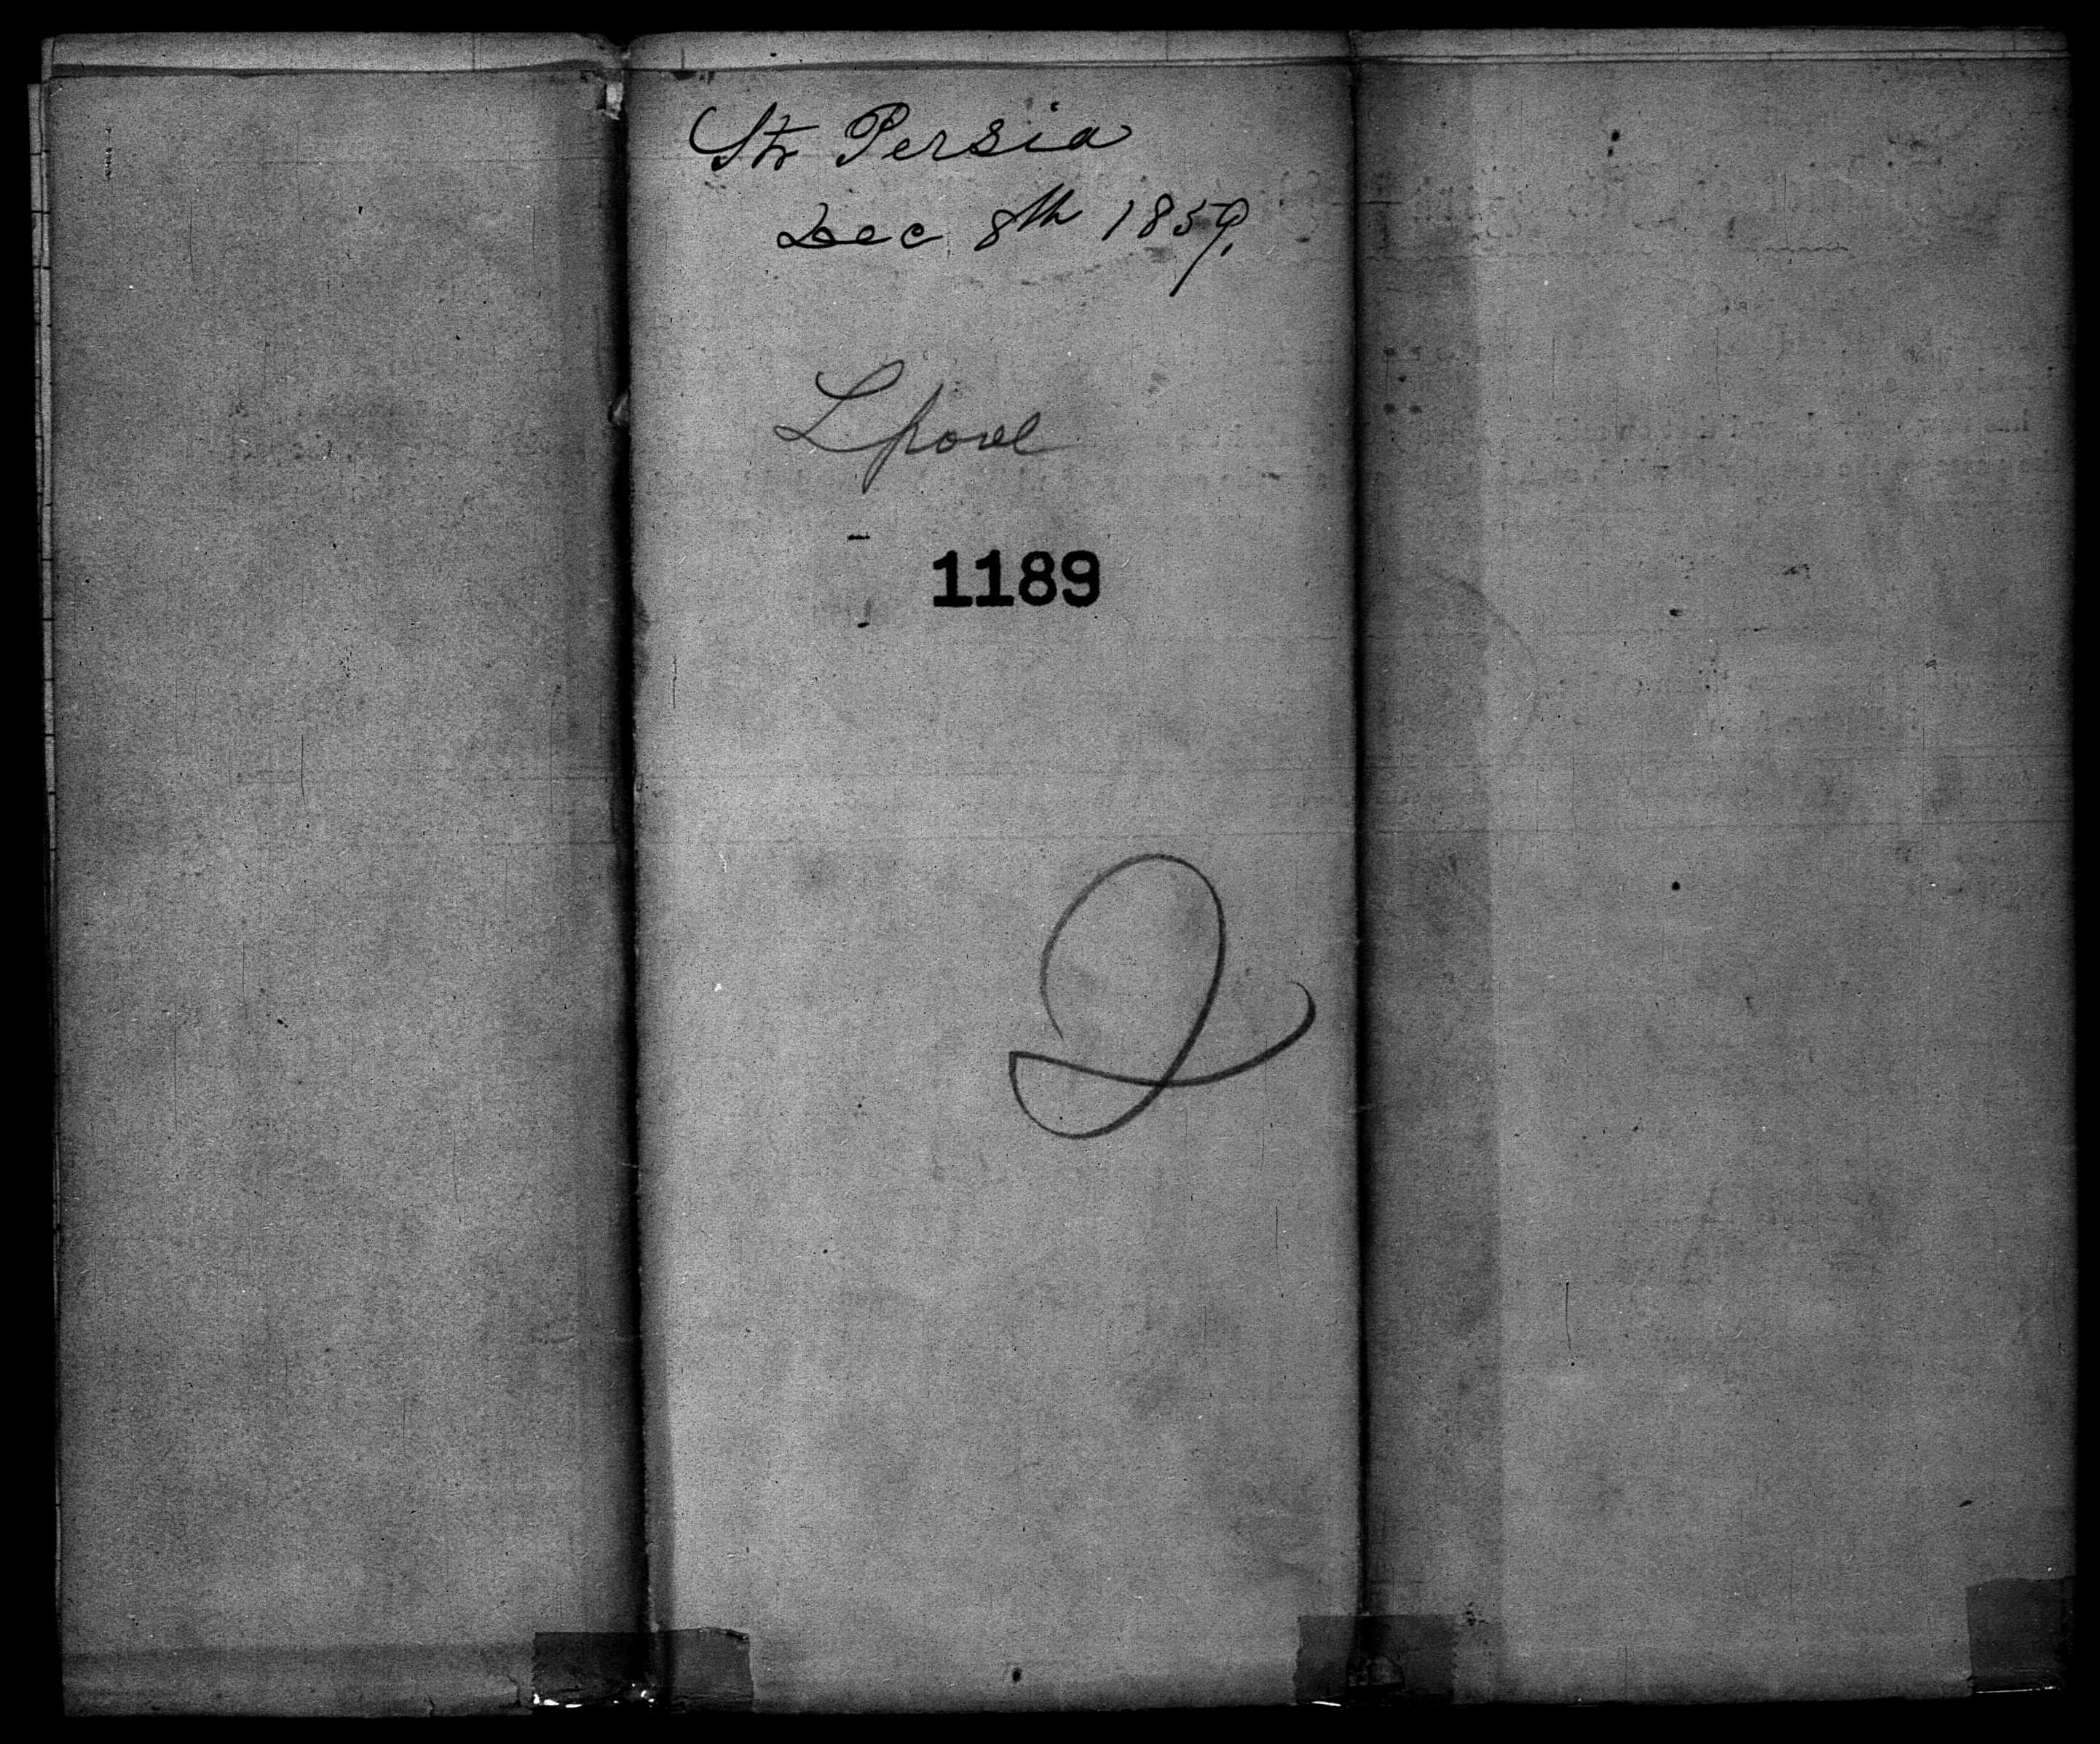 Str Persia
Dec 8th 1859.
Lpool
1189
2